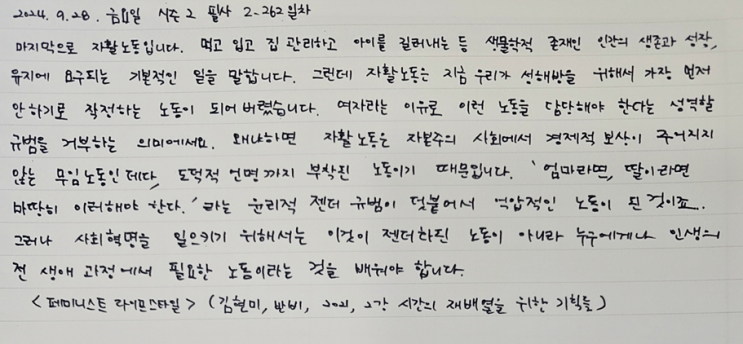 2024. 9. 28. 금요일 시즌 2 필사 2-262일차
마지막으로 자활노동입니다. 먹고 입고 집 관리하고 아이를 길러내는 등 생물학적 존재인 인간의 생존과 성장,
유지에 요구되는 기본적인 일을 말합니다. 그런데 자활노동은 지금 우리가 성해방을 위해서 가장 먼저
안 하기로 작정하는 노동이 되어 버렸습니다. 여자라는 이유로 이런 노동을 담당해야 한다는 성역할
규범을 거부하는 의미에서요. 왜냐하면 자활노동은 자본주의 사회에서 경제적 보상이 주어지지
않는 무임노동인데다, 도덕적 언명까지 부착된 노동이기 때문입니다. '엄마라면, 딸이라면
마땅히 이러해야 한다.'라는 윤리적 젠더 규범이 덧붙어서 억압적인 노동이 된 것이죠.
그러나 사회혁명을 일으키기 위해서는 이것이 젠더화된 노동이 아니라 누구에게나 인생의
전 생애 과정에서 필요한 노동이라는 것을 배워야 합니다.
<페미니스트 라이프스타일> (김현미, 반비, 2021, 2강 시간의 재배열을 위한 기획들)